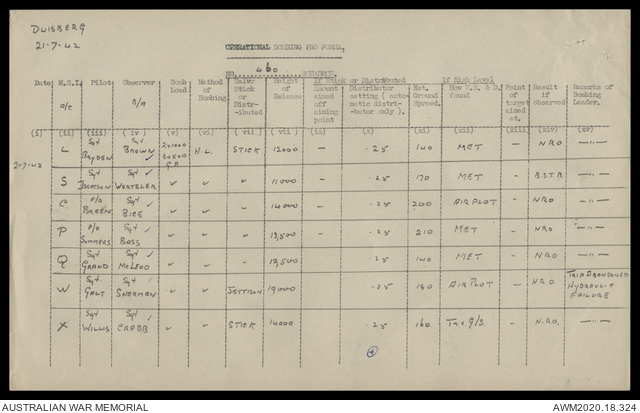 DUISBERG
21-7-42
OPERATIONAL BOMBING PRO FORMA.
NO. 460 SQUADRON.
If Stick or Distributed If High Level
Date M.S.I. A/C Pilot Observer B/A Bomb Load Method of Bombing Salvo Stick or Distr-ibuted Height of Release Amount aimed off aiming point Distributor setting (auto-matic distri-butor only). Est. Ground Speed. How W.S. & D. found Point of target aimed at. Result if observed Remarks of Bombing Leader.
(i) (ii) (iii) (iv) (v) (vi) (vii) (vii) (ix) (x) (xi) (xii) (xiii) (xiv) (xv)
21-7-42 L Sgt BRYDEN Sgt BROWN 2x1000 G.P. H.L. STICK 12000 — .25 140 MET — NRO —"—
S Sgt JACKSON Sgt WERTZLER " " " 11000 — .25 170 MET — —"—
C P/O BREEN Sgt BICE " " " 14000 — .25 200 AIRPLOT — NRO —"—
P P/O SUMMERS Sgt BASS " " " 13,500 — .25 210 MET — NRO —"—
Q Sgt GRAND Sgt McLEOD " " " 12,500 — .25 140 MET — NRO —"—
W Sgt GALT Sgt SHERMAN " " JETTISON 19000 .25 180 AIRPLOT — NRO. TRIP ABANDONED HYDRAULIC FAILURE
X Sgt WILLIS Sgt CRABB " " STICK 14000 .25 160 — N.R.O. —"—
AUSTRALIAN WAR MEMORIAL
AWM2020.18.324